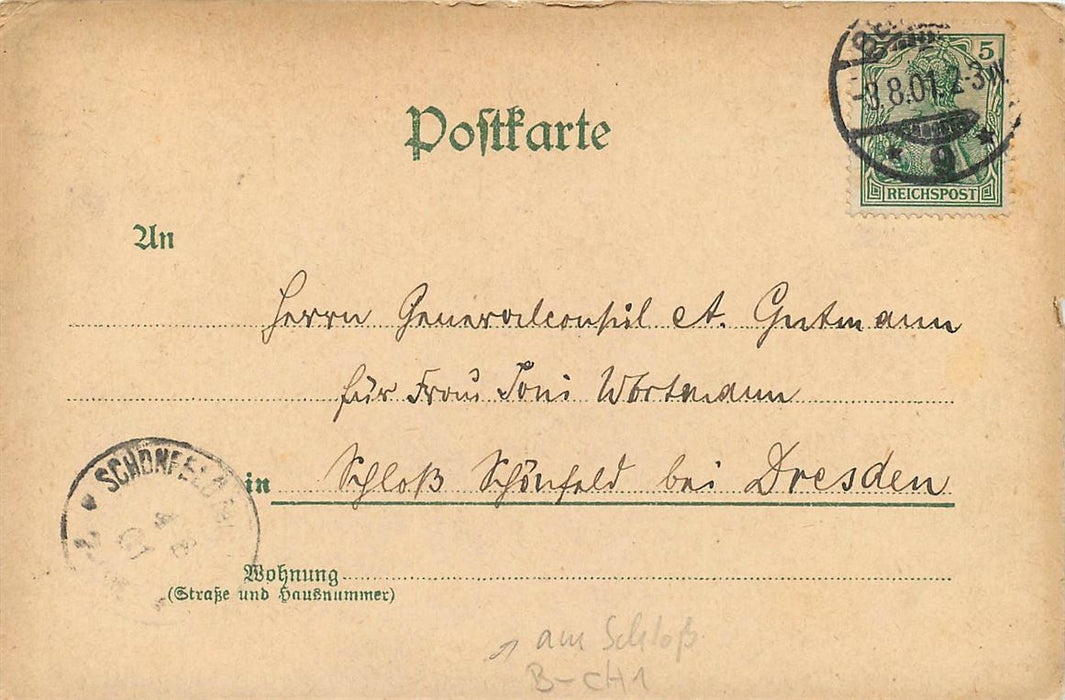 5
3.8.01. 2-3N.
* 9 *
REICHSPOST
Postkarte
An
Herrn Generalconsul A. Gutmann
für Frau Toni Wortmann
in Schloß Schönfeld bei Dresden
SCHÖNFELD
Wohnung
(Straße und Hausnummer)
am Schloß
B-CH1